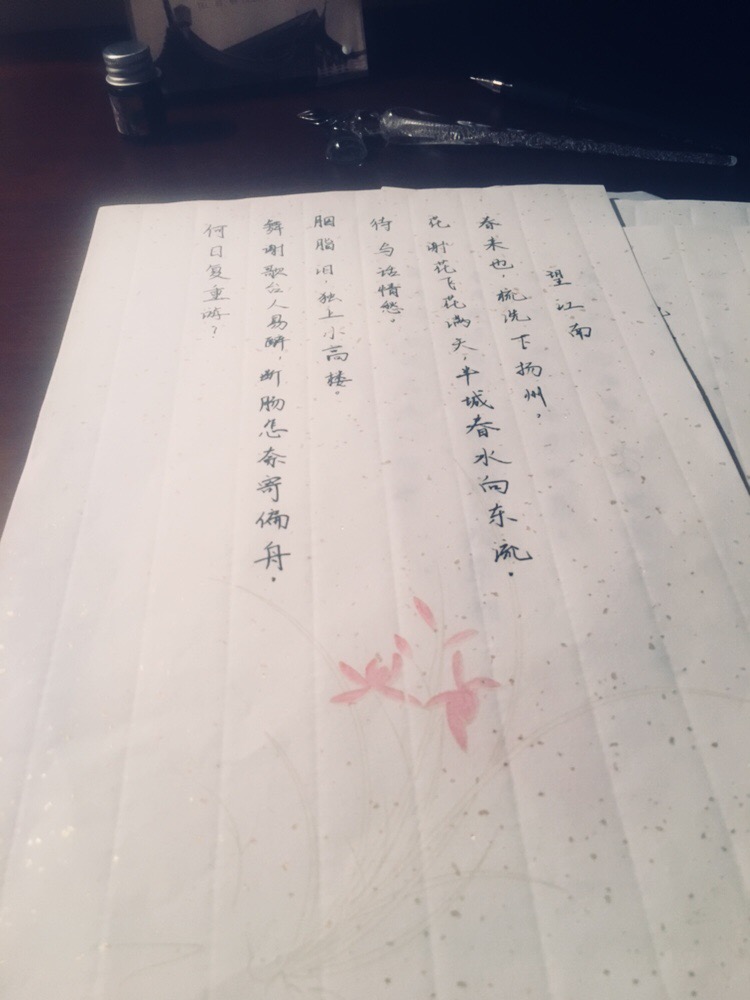 望江南
春来也，梳洗下扬州，
花谢花飞花满天，半城春水向东流。
待与话情愁。
胭脂泪，独上小高楼。
舞谢歌台人易醉，断肠怎奈寄偏舟。
何日复重游？